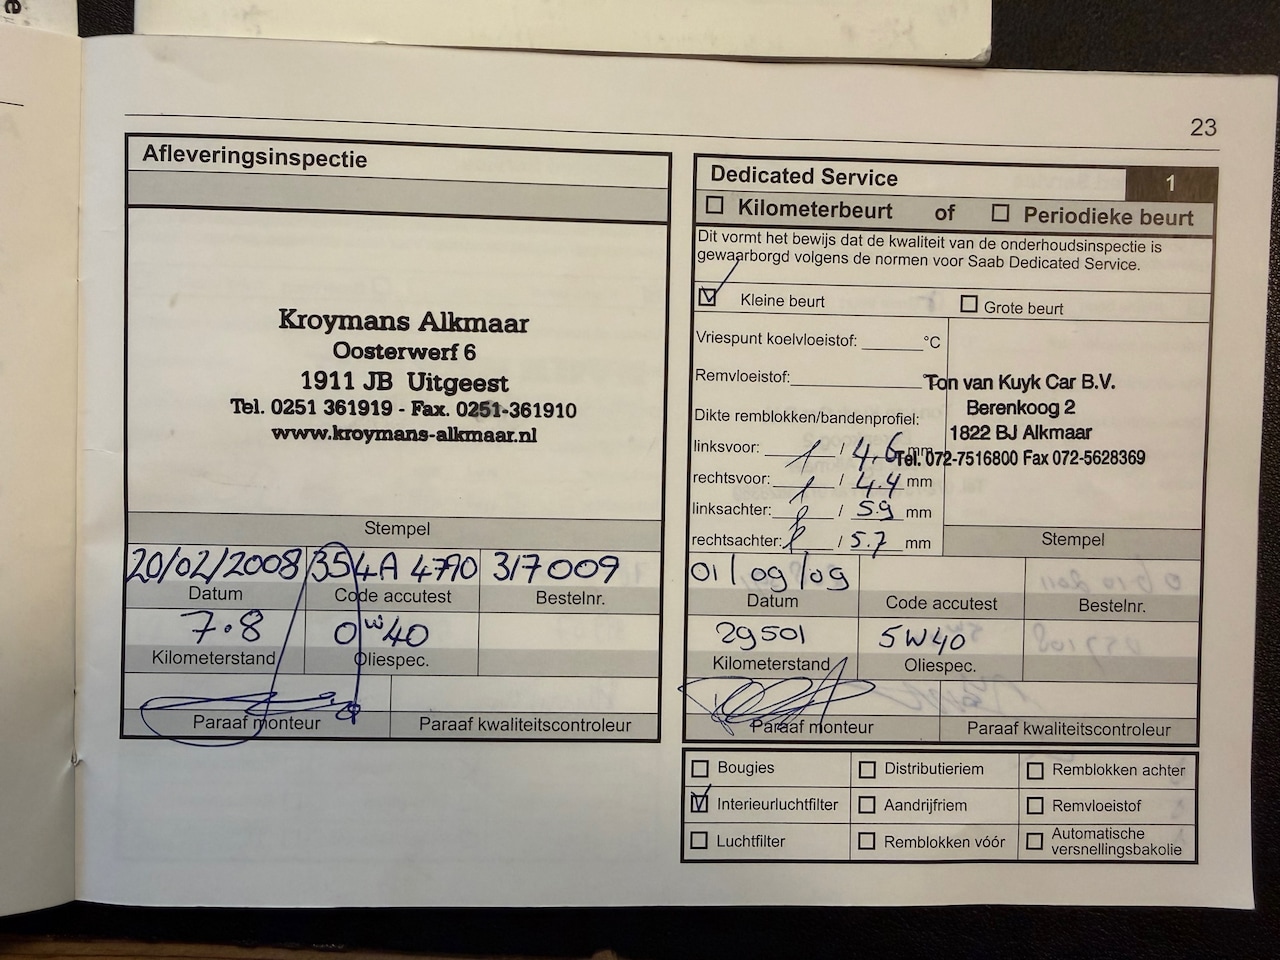 23
Afleveringsinspectie
Kroymans Alkmaar
Oosterwerf 6
1911 JB Uitgeest
Tel. 0251 361919 - Fax. 0251-361910
www.kroymans-alkmaar.nl
Stempel
20/02/2008 354A 4790 317009
Datum Code accutest Bestelnr.
7.8 0W40
Kilometerstand Oliespec.
Paraaf monteur Paraaf kwaliteitscontroleur
Dedicated Service 1
Kilometerbeurt of Periodieke beurt
Dit vormt het bewijs dat de kwaliteit van de onderhoudsinspectie is
gewaarborgd volgens de normen voor Saab Dedicated Service.
Kleine beurt Grote beurt
Vriespunt koelvloeistof: °C
Remvloeistof:
Dikte remblokken/bandenprofiel:
linksvoor: / 4.6 mm
rechtsvoor: / 4.4 mm
linksachter: / 5.9 mm
rechtsachter: / 5.7 mm
Ton van Kuyk Car B.V.
Berenkoog 2
1822 BJ Alkmaar
Tel. 072-7516800 Fax 072-5628369
Stempel
01/09/09
Datum Code accutest Bestelnr.
29501 5W40
Kilometerstand Oliespec.
Paraaf monteur Paraaf kwaliteitscontroleur
Bougies Distributieriem Remblokken achter
Interieurluchtfilter Aandrijfriem Remvloeistof
Luchtfilter Remblokken vóór Automatische
versnellingsbakolie